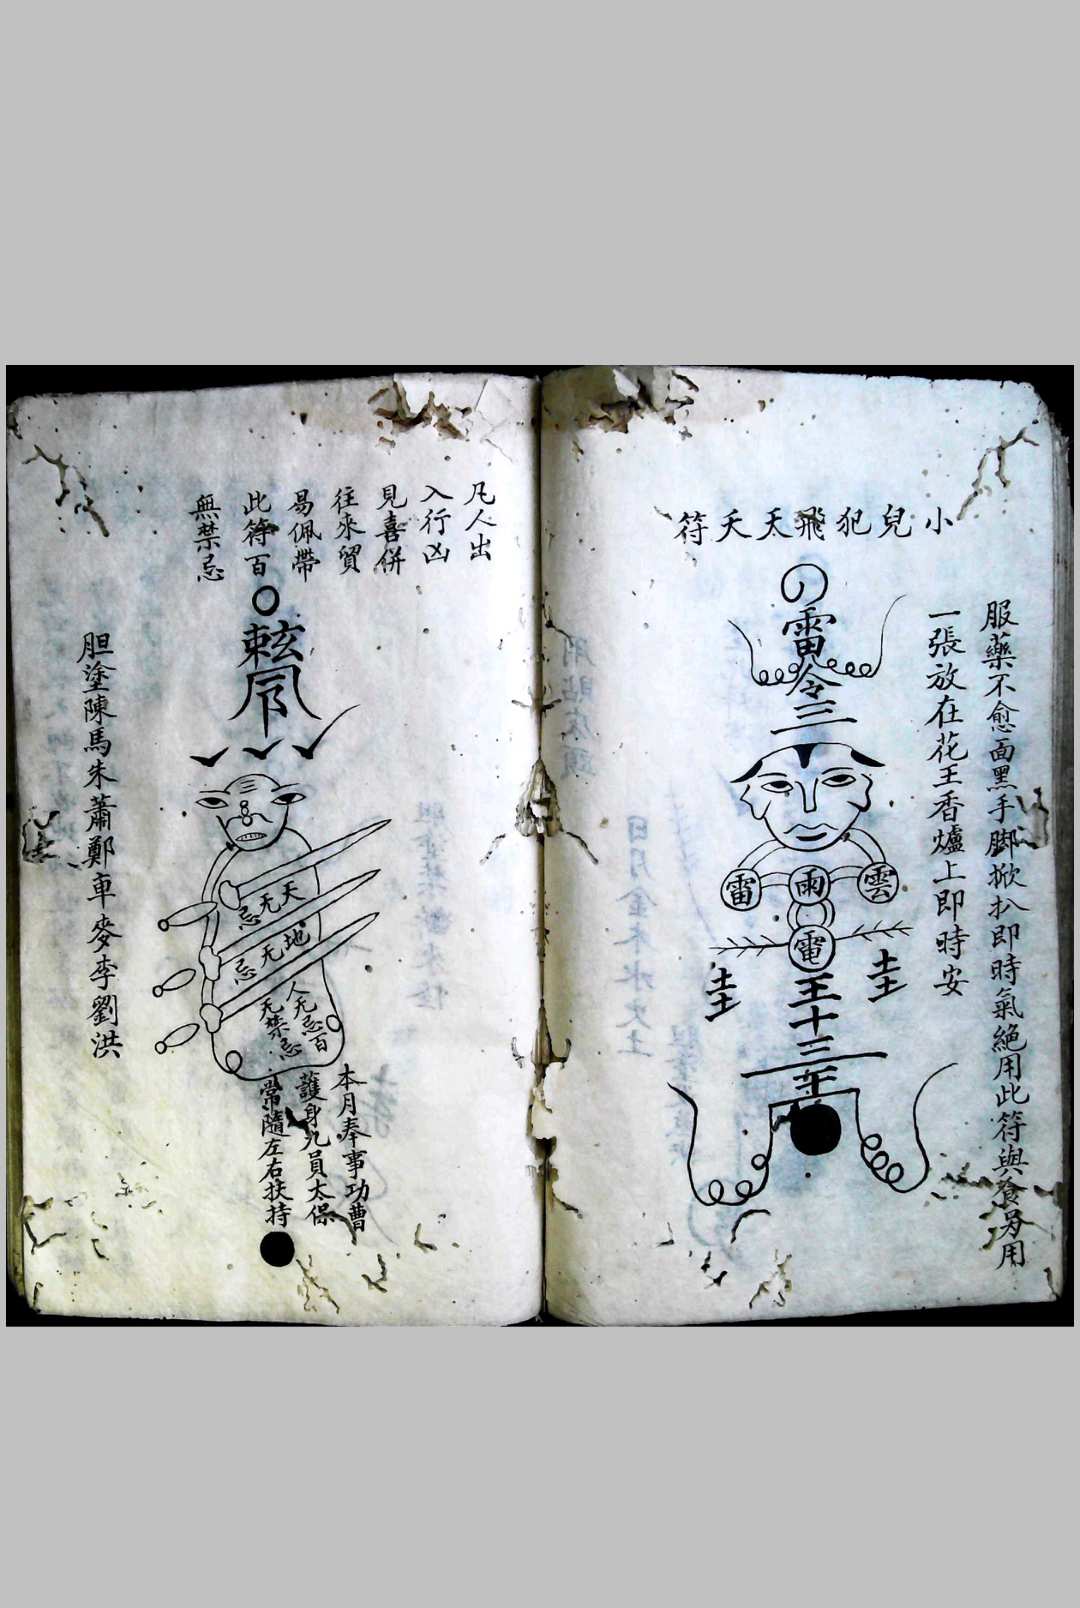 小兒犯飛天夭符
服藥不愈面黑手脚掀扒即時氣絕用此符與食另用
一張放在花王香爐上即時安
雷令三
雷 雨 雲
電
圭 圭
王十三年
凡人出
入行凶
見喜併
往來貿
易佩帶
此符百
無禁忌
天无忌
地无忌
人无忌百
无禁忌
本月奉事功曹
護身九員太保
常隨左右扶持
胆塗陳馬朱蕭鄭車麥李劉洪